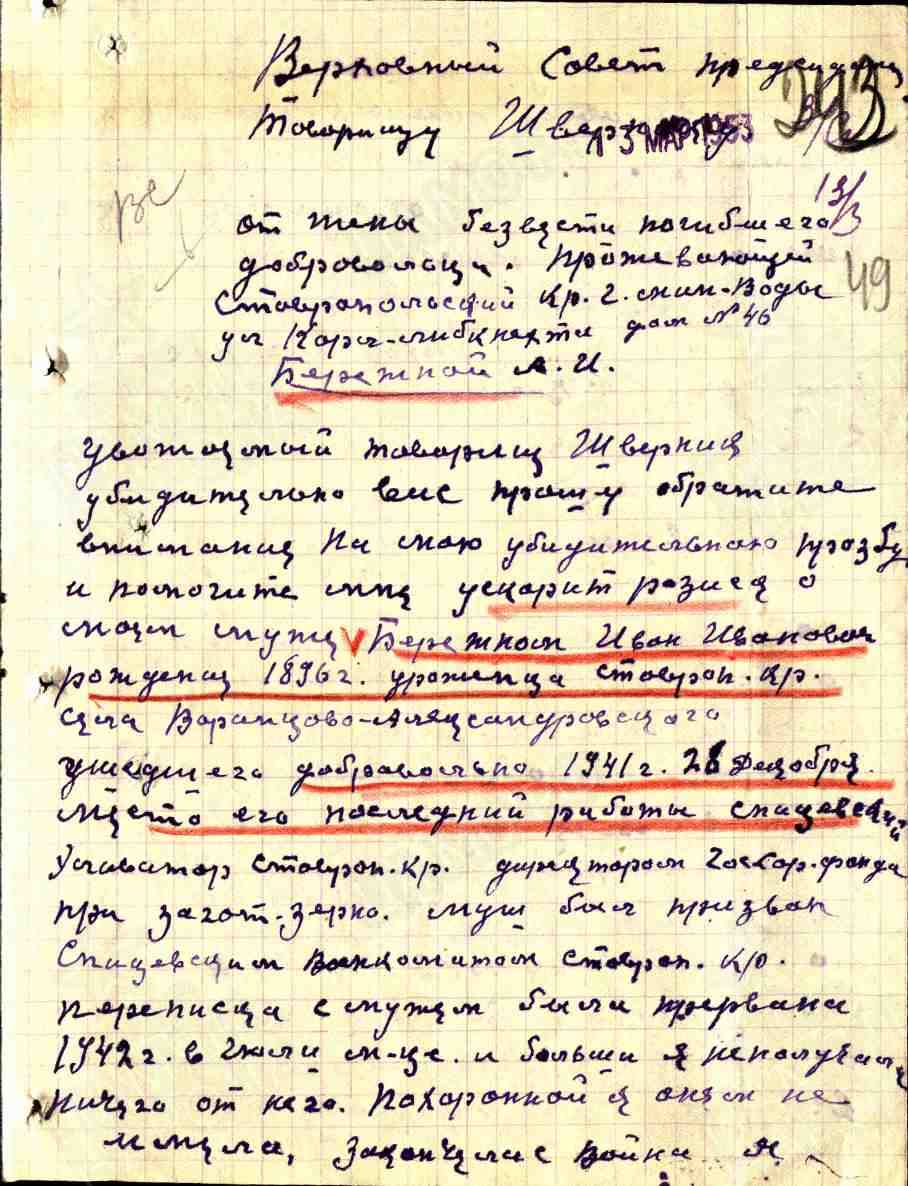 Верховный Совет председат
243
Товарищу Швернику
13 МАР 1953
13/3
от жены безвести погибшего
добровольца. Проживающей
49
Ставропольский Кр. г. мин-Воды
ул Карл-либкнехти дом № 46
Бережной А. И.
уважаемый товарищ Шверник
убидительно вас прошу обратите
внимание на маю убидительною прозбу
и помогите мне ускорит розиск о
моем муже V Бережном Иван Иванович
рождения 1896 г. уроженца Ставроп. Кр.
села Варанцово-Александровского
ушедшего добровольно 1941 г. 28 Декобря
Место его последний работы спицевский
Еливатор Ставроп. Кр. директором Госсор. фонда
при загот-зерно. муш был призван
Спицевским Воинкоматом Ставроп. Кр.
переписка с мужем была прервана
1942 г. в Июли м-це. и больши я неполучала
ничего от него. Похоронной я оним не
имела, закончелас война я